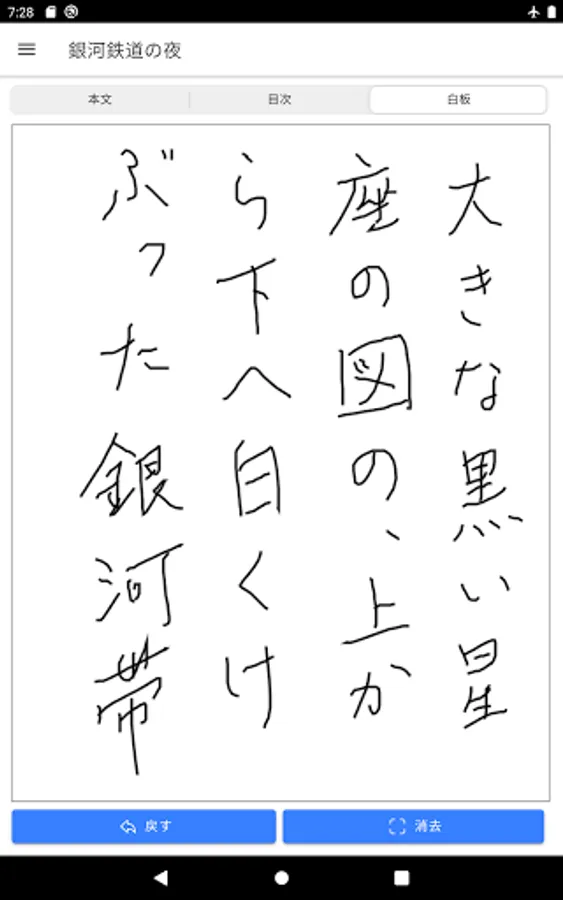 7:28
銀河鉄道の夜
本文
目次
白板
大きな黒い星
座の図の、上か
ら下へ白くけ
ぶった銀河帯
戻す
消去